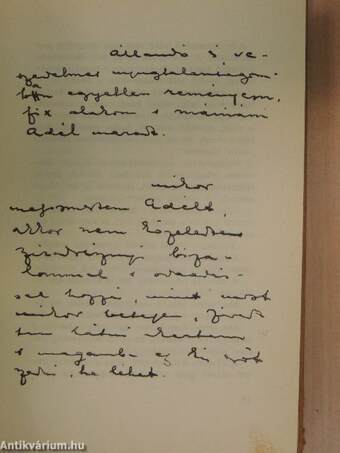 állandó s ve-
szedelmes nyugtalanságom-
ban egyetlen reményem,
fix alakom s mániám
Adél maradt.
mikor
megismertem Adélt,
akkor nem közeledtem
biza-
lommal s odaadás-
sal hozzá, mint most
mikor beteg,
tem látni akartam
s magamba egy kis erőt
szedni, ha lehet.
Antikvárium.hu